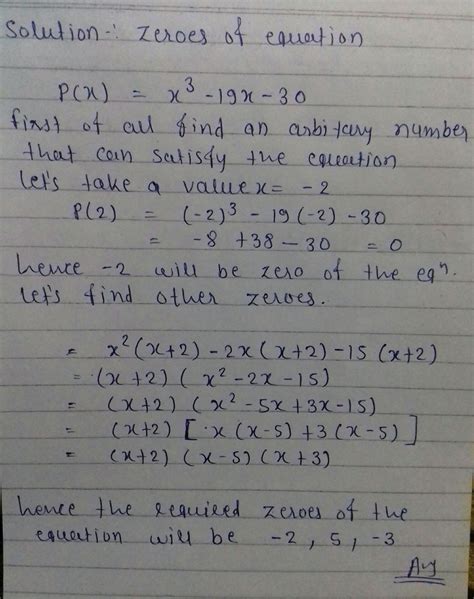 Solution:- zeroes of equation
P(x) = x³ - 19x - 30
first of all find an arbitary number
that can satisfy the equation
let's take a value x = -2
P(2) = (-2)³ - 19(-2) - 30
= -8 + 38 - 30 = 0
hence -2 will be zero of the eqⁿ.
let's find other zeroes.
= x²(x+2) - 2x(x+2) - 15(x+2)
= (x+2) (x² - 2x - 15)
= (x+2) (x² - 5x + 3x - 15)
= (x+2) [x(x-5) + 3(x-5)]
= (x+2) (x-5) (x+3)
hence the required zeroes of the
equation will be -2, 5, -3
Ans